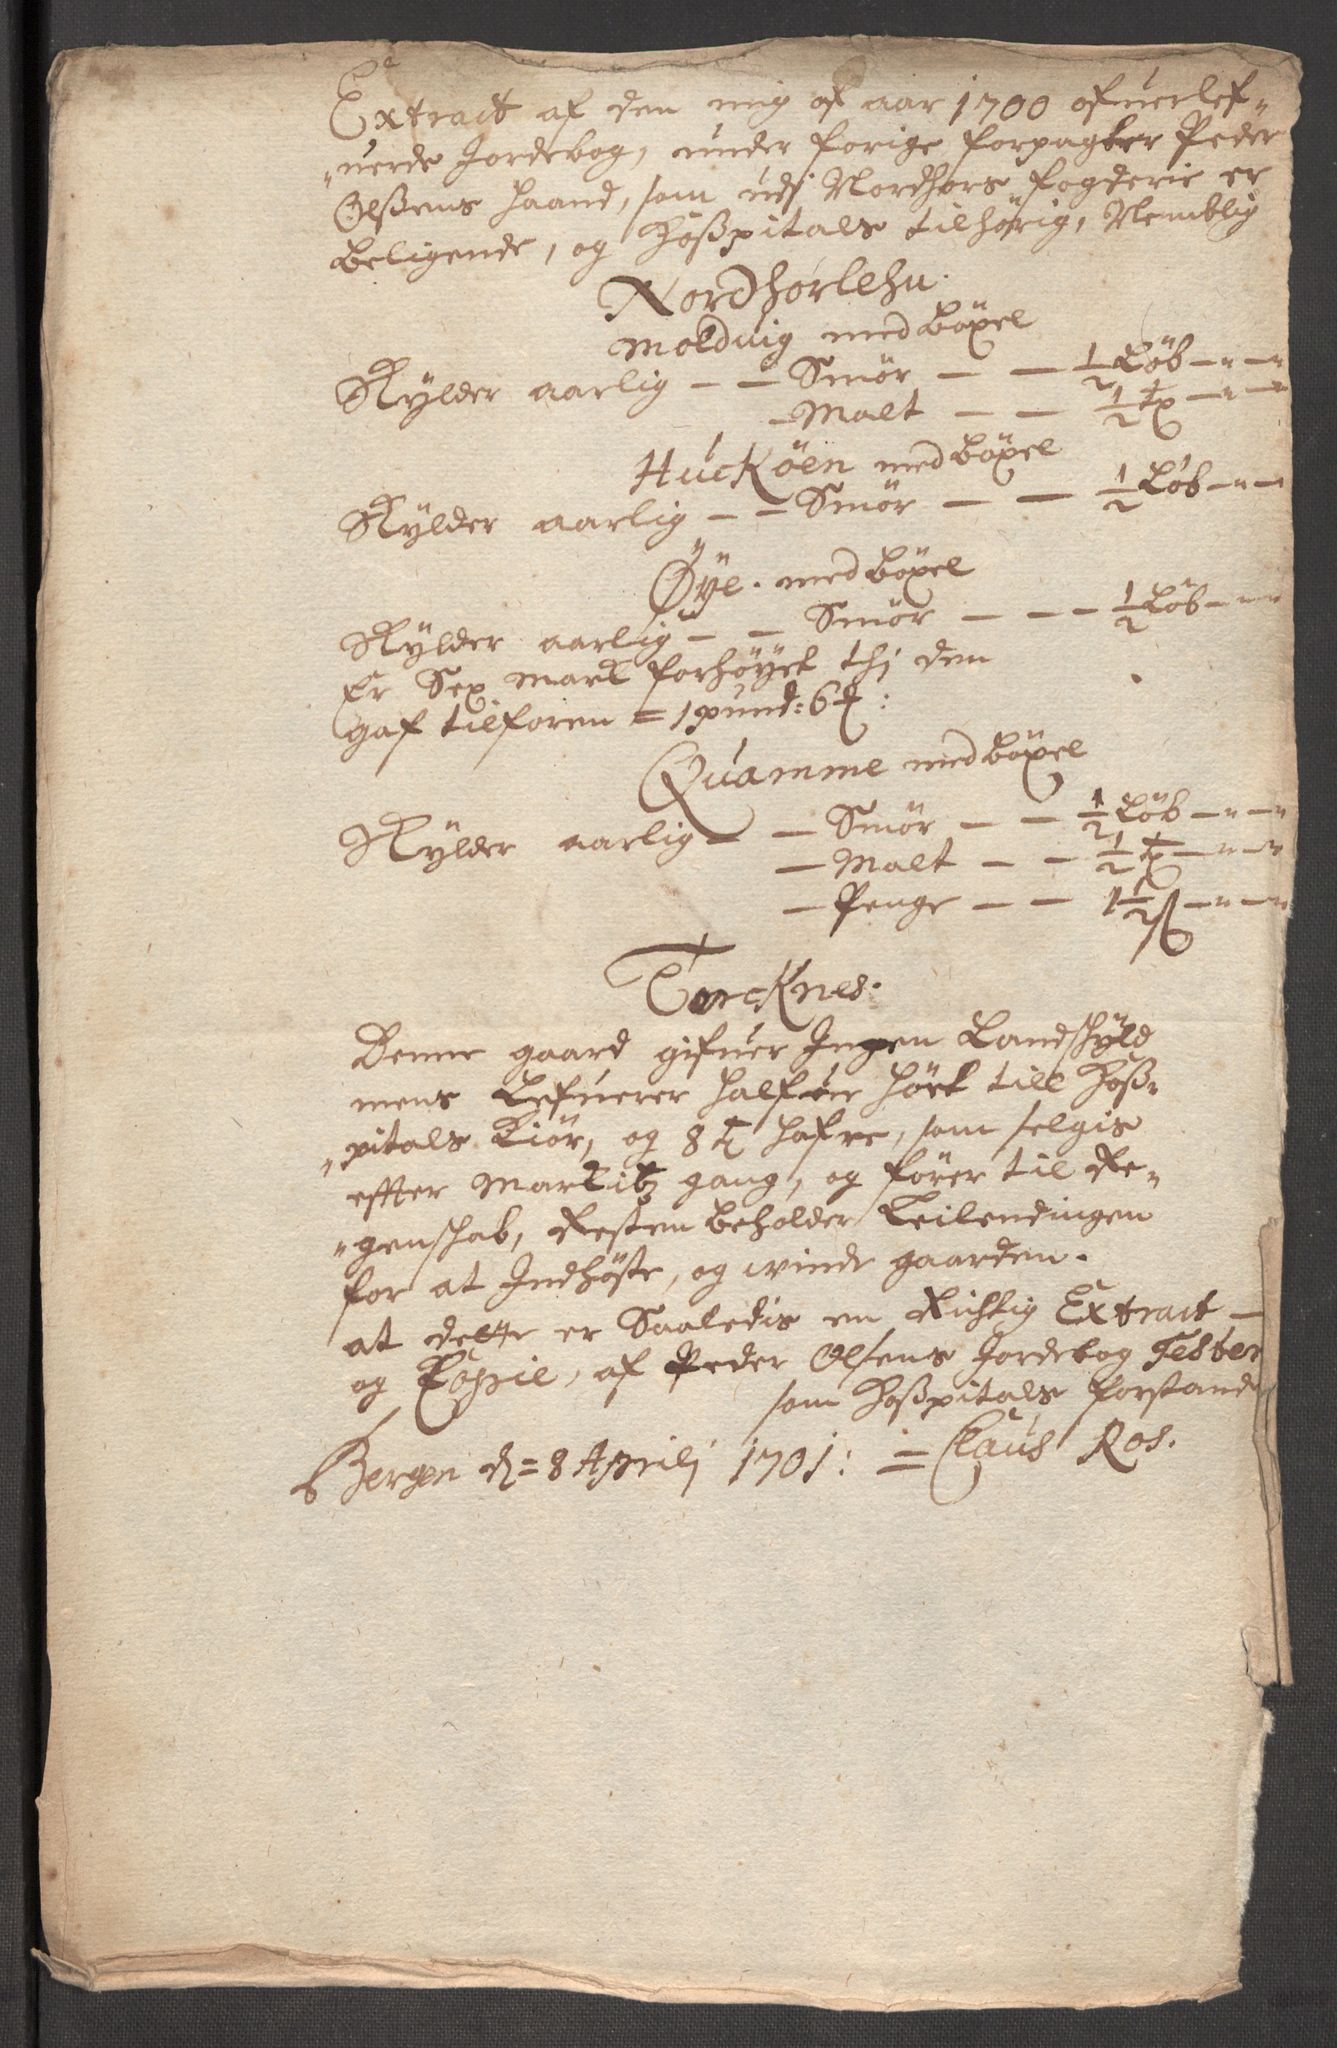 Extract af den mig af aar 1700 ofuerlef-
uerde Jordebog, under forige forpagter Peder
Olßens haand, som udj Nordhors fogderie er
beligende, og Hoßpitals tilhörig, Nemblig
Nordhorlehn.
Molduig med böxel
Skÿlder aarlig — — Smör — — 1/2 Löb — " — "
— Malt — — 1/2
Huckøen med böxel
Skÿlder aarlig — — Smör — — 1/2 Löb — " —
Øÿe. med böxel
Skÿlder aarlig — — Smör — — — 1/2 Löb — " — "
Er Sex mark forhöÿet thj den
gaf tilforen = 1 pund: 6
Quamme med böxel
Skÿlder aarlig — — Smör — — 1/2 Löb — " — "
— Malt — — 1/2 — " — "
— Penge — — 1 1/2 ß — " — "
Torcknes.
Denne gaard gifuer Ingen Landschÿld
mens Lefuerer halfue höet till Hoß-
pitals Kiör, og 8 hafre, som selgis
effter Markitz gang, og förer til Re-
genschab, Resten beholder Leilendingen
for at Indhöste, og winde gaarden.
at dette er Saaledis en Richtig Extract —
og Copie, af Peder Olsens Jordebog Tester
som Hoßpitals forstand
Bergen d = 8 Aprilj 1701: = Claus Ros.